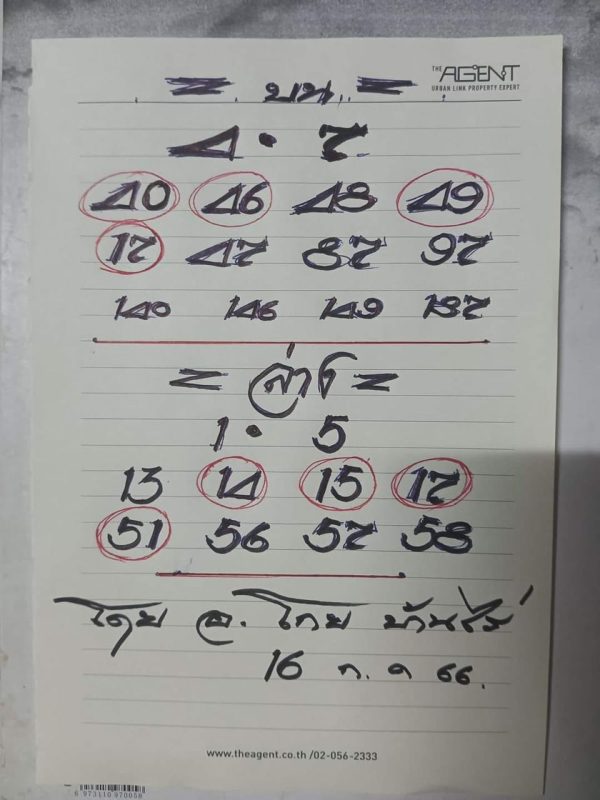 THE AGENT
URBAN LINK PROPERTY EXPERT
= บน =
4 · 7
40 46 48 49
17 47 87 97
140 146 149 187
= ล่าง =
1 · 5
13 14 15 17
51 56 57 58
โดย อ. โกย บ้านไร่
16 ก.ค 66.
www.theagent.co.th /02-056-2333
6 973110 970058